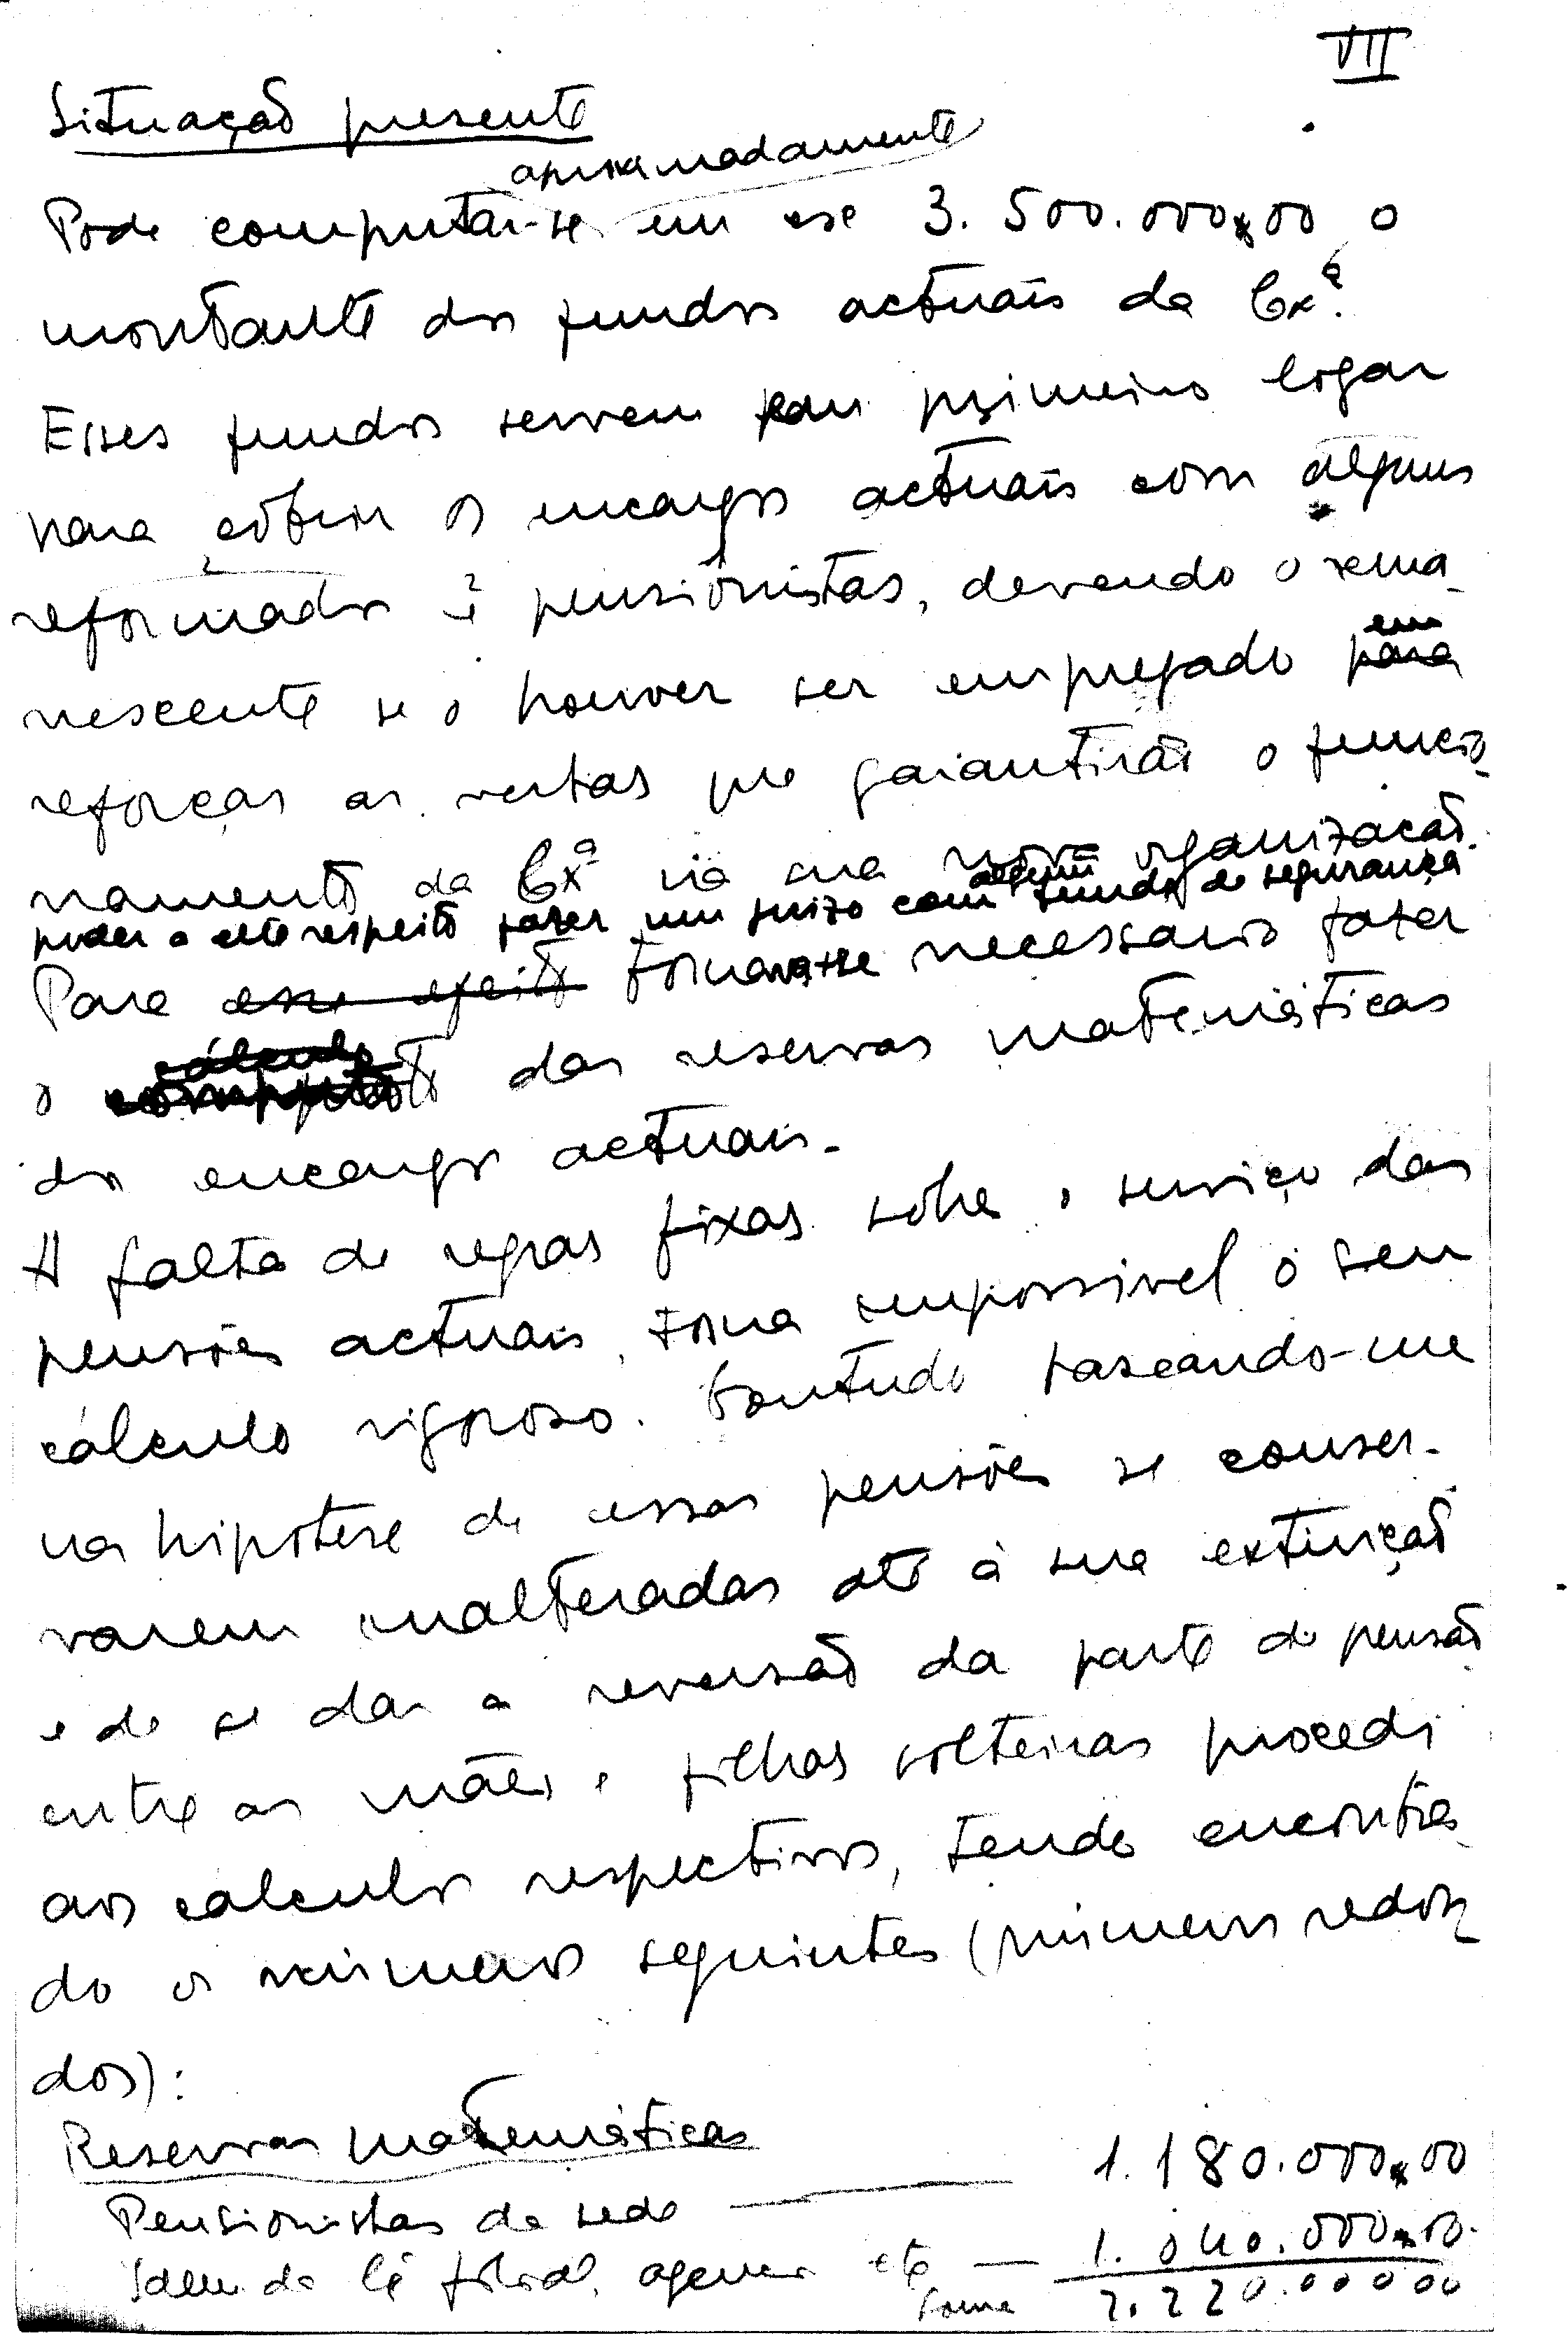 VII
Situação presente
aproximadamente
Pode computar-se em esc 3.500.000$00 o
montante dos fundos actuais da Cxª.
Esses fundos servem em primeiro logar
para cobrir os encargos actuais com alguns
reformados e pensionistas, devendo o rema-
nescente se o houver ser empregado em para
reforçar as verbas que garantirão o funcio-
namento da Cxª na sua nova organização.
poder a este respeito fazer um juizo com algum fundo de segurança
Para esse efeito torna-se necessario fazer
o cálculo computo das reservas matemáticas
dos encargos actuais.
A falta de regras fixas sobre o serviço das
pensões actuais, torna impossivel o seu
cálculo rigoroso. Contudo baseando-me
na hipotese de essas pensões se conser-
varem inalteradas até à sua extinção
e de se dar a reversão da parte de pensão
entre as mães e filhas solteiras procedi
aos calculos respectivos, tendo encontra-
do os números seguintes (números redon
dos):
Reservas matemáticas
Pensionistas da sede — 1.180.000$00
Idem da filial, agencias etc — 1.040.000$00.
Soma 2.220.000 00